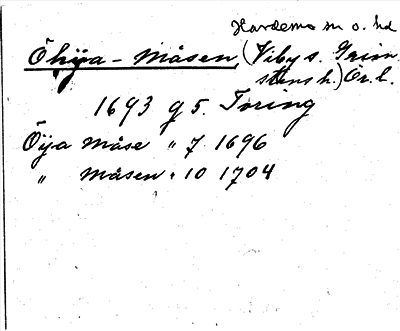 Hardemo sn o. hd
Öhÿa - måsen (Viby s. Grim
stens h.) Ör. l.
1693 g 5. Toring
Öÿa måse " 7 1696
" måsen " 10 1704